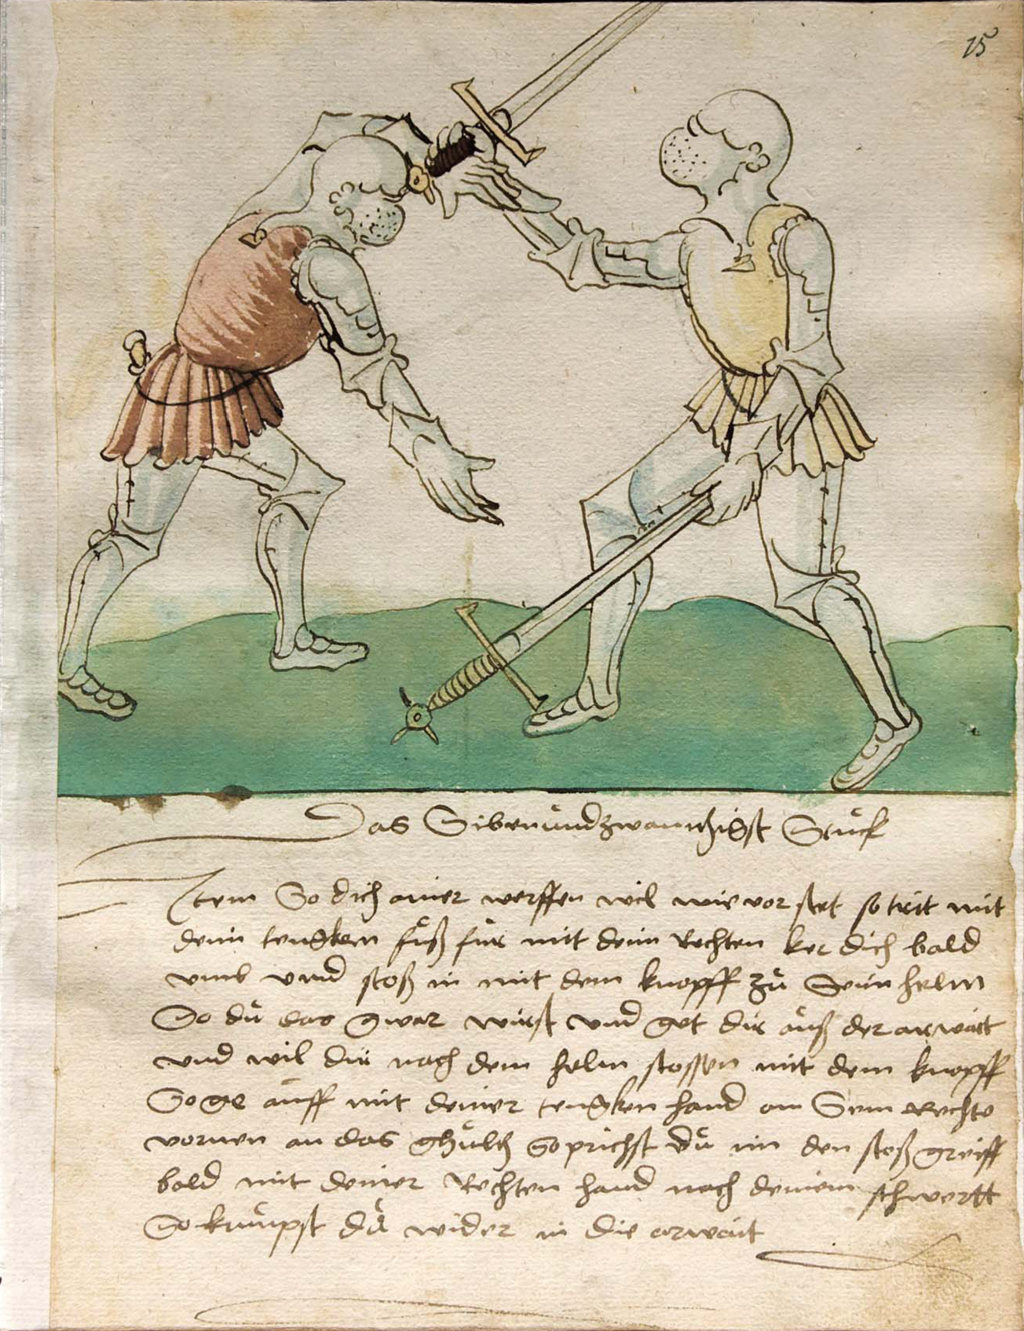 15
Das Sibenundzwanzigist Stuck
Item So dich ainer werffen wil wie vor stet so trit mit
deim lengken fuß für mit deim Rechten ker dich bald
umb und stoß in mit dem knopff zu Seim helm
So du das gwar würst und get dir auß der arwait
und wil dir nach dem helm stossen mit dem knopff
So ge auff mit deiner lengken hand an Sein Rechte
vornen an das ghultz So prichst du im den stoß greiff
bald mit deiner Rechten hand nach deinem schwertt
So kumpst du wider in die arwait